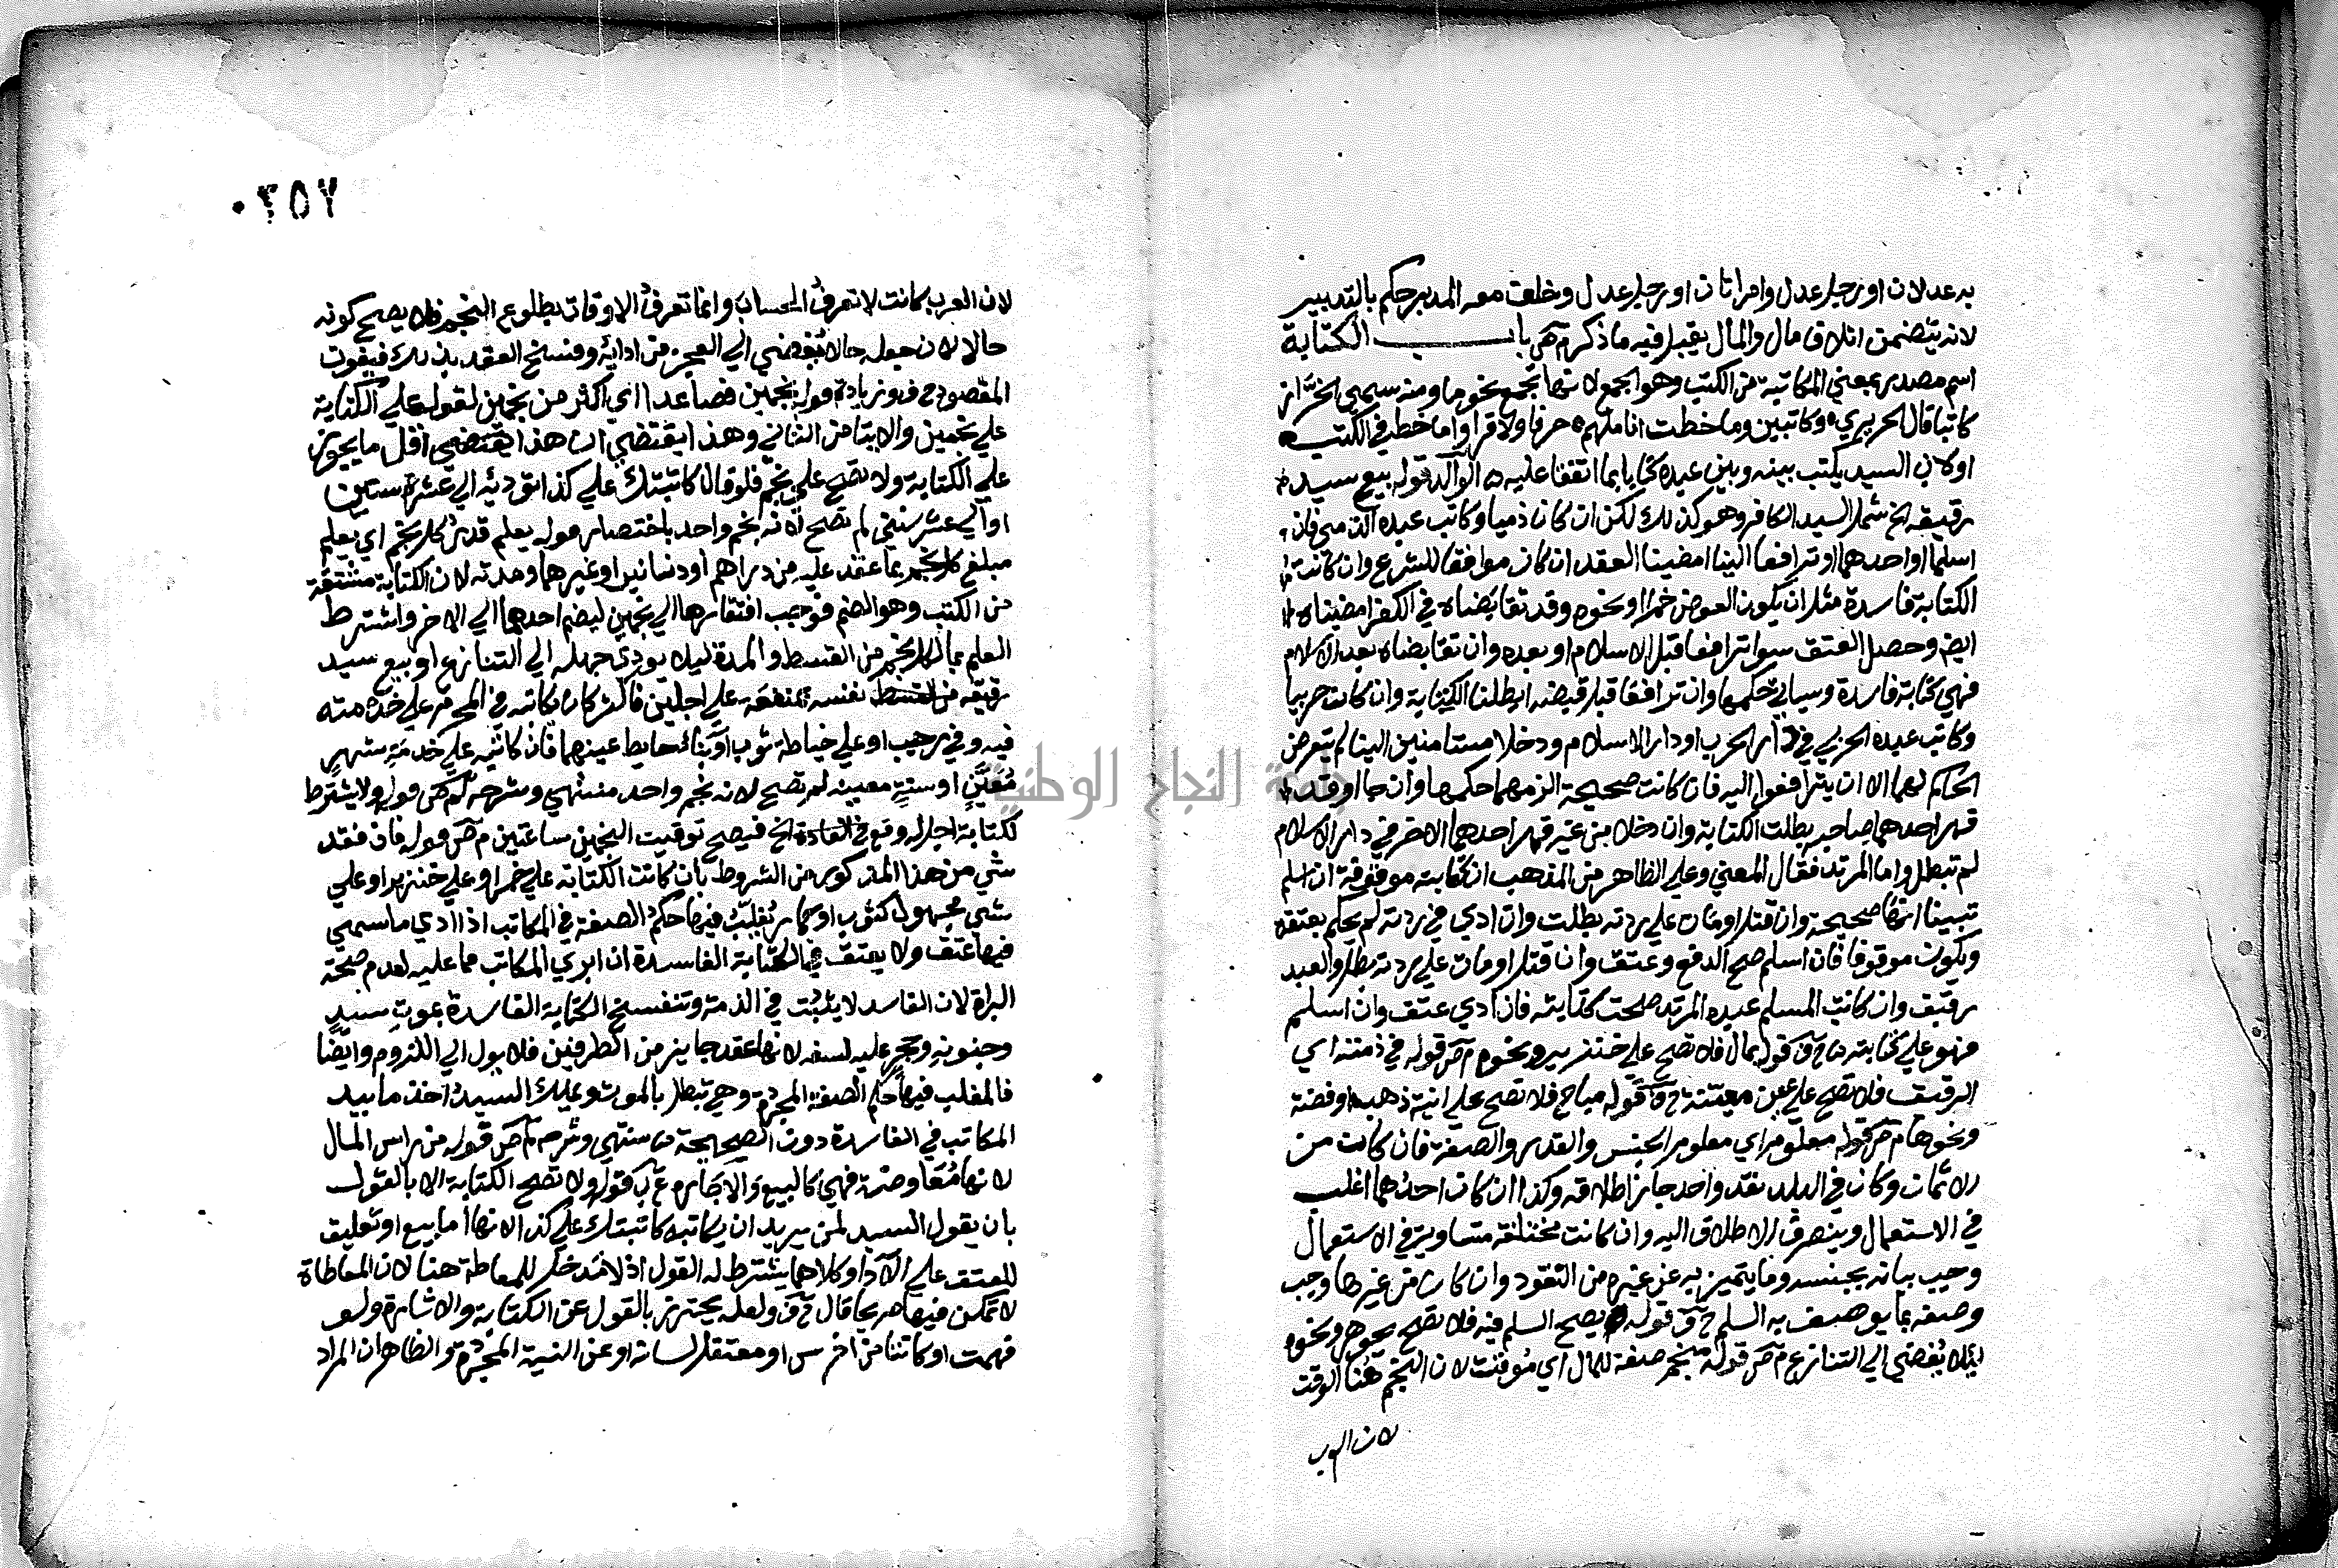 به عدلان او رجل عدل وامراتان او رجل عدل وحلف معه المدبر حكم بالتدبير
لانه يتضمن اتلاف مال والمال يقبل فيه ما ذكر م ص باب الكتابة
اسم مصدر بمعني المكاتبة من الكتب وهو الجمع لانها تجمع نجوما ومنه سمي الخراز
كاتبا قال الحريري وكاتبين وما خطت اناملهم حرفا ولا قراوا ما خط في الكتب
او لان السيد يكتب بينه وبين عبده كتابا بما اتفقا عليه ه الوالد قوله بيع سيد
رقيقه الخ شمل السيد الكافر وهو كذلك لكن ان كان ذميا وكاتب عبده الذمي فان
اسلما او احدهما او ترافعا الينا امضينا العقد ان كان موافقا للشرع وان كانت
الكتابة فاسدة مثل ان يكون العوض خمرا ونحوه وقد تقابضاه في الكفر امضيناه
ايض وحصل العتق سوا ترافعا قبل الاسلام او بعده وان تقابضاه بعد الاسلام
فهي كتابة فاسدة وسياتي حكمها وان ترافعا قبل قبضه ابطلنا الكتابة وان كان حربيا
وكاتب عبده الحربي في دار الحرب او دار الاسلام ودخلا مستامنين الينا لم يتعرض
الحاكم لهما الا ان يترافعوا اليه فان كانت صحيحة الزمهما حكمها وان جاا وقد
قهر احدهما صاحبه بطلت الكتابة وان دخلا من غير قهر احدهما الاخر في دار الاسلام
لم تبطل واما المرتد فقال المغني وعلي الظاهر من المذهب ان كتابته موقوفة ان اسلم
تبينا انها صحيحة وان قتل او مات علي ردته بطلت وان ادي في ردته لم يحكم بعتقه
ويكون موقوفا فان اسلم صح الدفع وعتق وان قتل او مات علي ردته بطل والعبد
رقيق وان كاتب المسلم عبده المرتد صحت كتابته فان ادي عتق وان اسلم
فهو علي كتابته قوله بمال فلا تصح علي خنزير ونحوه م ص قوله في ذمته اي
الرقيق فلا تصح علي عين معينة ح ف قوله مباح فلا تصح علي انية ذهب او فضة
ونحوها م ص قوله معلوم اي معلوم الجنس والقدر والصفة فان كانت من
الاثمان وكان في البلد نقد واحد جاز اطلاقه وكذا ان كان احدهما اغلب
في الاستعمال وينصرف الاطلاق اليه وان كانت مختلفة متساوية في الاستعمال
وجب بيانه بجنسه وما يتميز به عن غيره من النقود وان كان من غيرها وجب
وصفه بما يوصف به السلم ح ف قوله يصح السلم فيه فلا تصح بجوهر ونحوه
ليلا يفضي الي التنازع م ص قوله منجم صفة للمال اي موقت لان النجم هنا الوقت
لان العرب
٠٢٥٧
لان العرب كانت لا تعرف الحساب وانما تعرف الاوقات بطلوع النجم فلا يصح كونه
حالا لان جعله حالا يفضي الي العجز من ادائه وفسخ العقد بذلك فيفوت
المقصود ح ف وزيادة قوله بنجمين فصاعدا اي اكثر من نجمين لقول علي الكتابة
علي نجمين والايتا من الثاني وهذا يقتضي ان هذا يقتضي اقل ما يجوز
علي الكتابة ولا تصح علي نجم فلو قال كاتبتك علي كذا تؤديه الي عشر سنين
او الي عشر سنين لم تصح لانه نجم واحد باختصار قوله يعلم قدر كل نجم اي يعلم
مبلغ كل نجم بما عقد عليه من دراهم او دنانير او غيرهما ومدته لان الكتابة مشتقة
من الكتب وهو الضم فوجب افتقارها الي نجمين ليضم احدهما الي الاخر واشترط
العلم بما لكل نجم من القسط والمدة ليلا يودي جهله الي التنازع او بيع سيد
رقيقه نفسه بمنفعة علي اجلين كان يكاتبه في المحرم علي خدمته
فيه وفي رجب او علي خياطة ثوب او بناء حايط عينهما فان كاتبه علي خدمة شهر
معين او سنة معينة لم تصح لانه نجم واحد منتهي وشرحه م ص قوله ولا يشترط
لكتابة اجل له وقع في العادة الخ فيصح توقيت النجمين ساعتين م ص قوله فان فقد
شي من هذا المذكور من الشروط بان كانت الكتابة علي خمر او علي خنزير او علي
شي مجهول كثوب او حمار يغلب فيها حكم الصفة في المكاتب اذا ادي ما سمي
فيها عتق ولا يعتق في الكتابة الفاسدة ان ابري المكاتب مما عليه لعدم صحة
البراة لان الفاسد لا يثبت في الذمة وتنفسخ الكتابة الفاسدة بموت سيد
وجنونه وحجر عليه لسفه لانها عقد جايز من الطرفين فلا يول الي اللزوم وايضا
فالمغلب فيها حكم الصفة المجردة وهي تبطل بالموت ويملك السيد اخذ ما بيد
المكاتب في الفاسدة دون الصحيحة منتهي وشرحه م ص قوله من راس المال
لانها معاوضة فهي كالبيع والاجارة ع ب قوله ولا تصح الكتابة الا بالقول
بان يقول السيد لمن يريد ان يكاتبه كاتبتك علي كذا لانها اما بيع او تعليق
للعتق علي الادا وكلاهما يشترط له القول اذ لا مدخل للمعاطة هنا لان المعاطاة
لا تمكن فيها صريحا قال ح ف ولعله يحترز بالقول عن الكتابة والاشارة ولو
فهمت او كانتا من اخرس او معتقل لسانه او عن النية المجردة والظاهر ان المراد
جامعة النجاح الوطنية